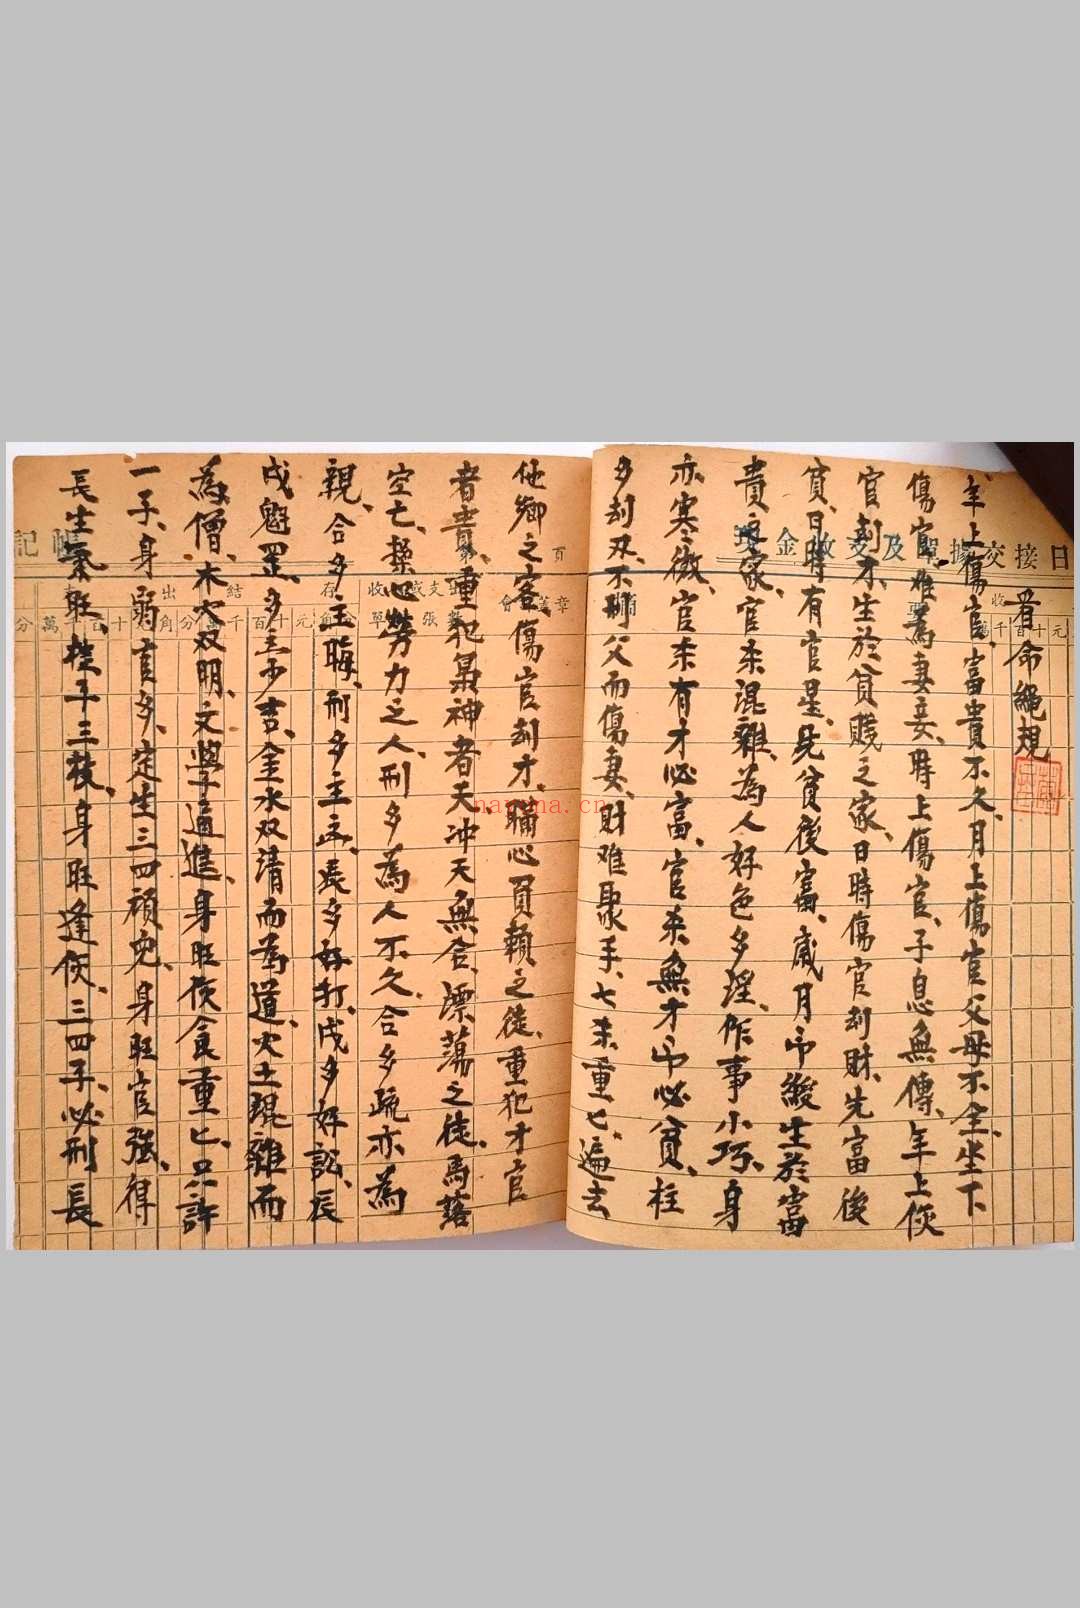 看命繩規
年上傷官、富貴不久、月上傷官父母不全、坐下
傷官、难為妻妾、時上傷官、子息無傳、年上
官刦才、生於貧賤之家、日時傷官刦財、先富後
貧、日時有官星、先貧後富、歲月印綬生於富
貴之家、官杀混雜、為人好色多淫、作事小巧、身
亦寒微、官杀有才必富、官杀無才印必貧、柱
多刦刃、不刑父而傷妻、財难聚手、七杀重七、遍去
他鄉之客、傷官刦才、瞞心負賴之徒、重犯才官
者貴、重犯梟神者夭、冲夭無合、漂蕩之徒、馬落
空亡、操心勞力之人、刑多為人不久、合多疏亦為
親、合多主晦、刑多主、辰多好打、戌多好訟、辰
戌魁罡、多主少吉、金水双清而為道、火土混雜而
為僧、木火双明、文學通進、身旺食重七、只許
一子、身弱官多、定生三四頑兒、身旺官強、得
長生氣旺、三枝、身旺逢、三四子、必刑長
日接交據單及支收金現
記帳
第 頁
收支或
單張數
會蓋章
存
結
出
收
萬千百十元角分